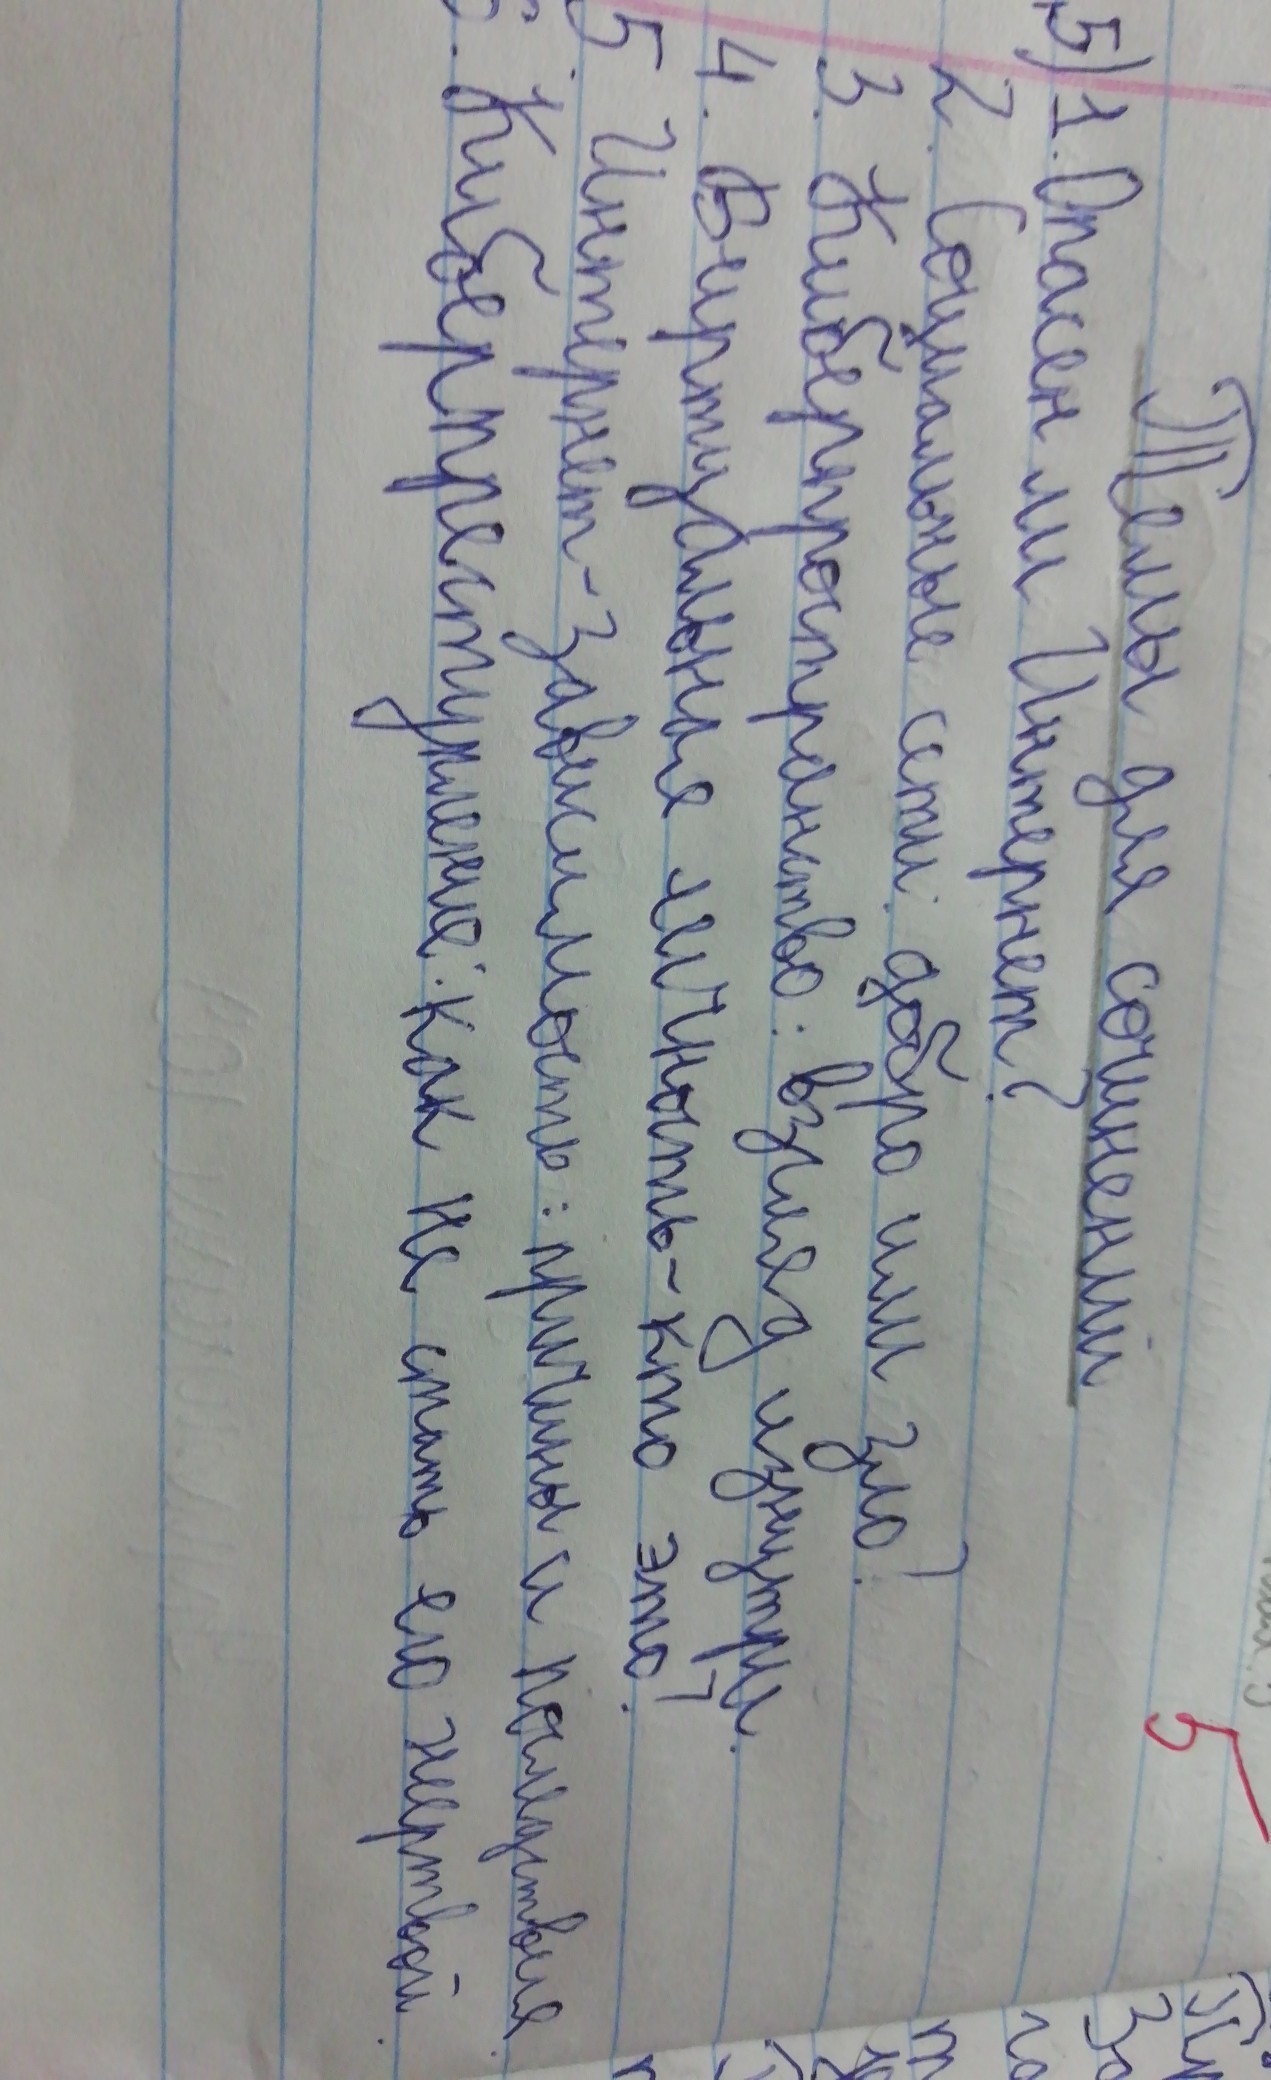 Темы для сочинений
5) 1. Опасен ли Интернет?
2. Социальные сети: добро или зло?
3. Киберпространство: взгляд изнутри.
4. Виртуальная личность - кто это?
5. Интернет-зависимость: причины и последствия.
6. Киберпреступление: как не стать его жертвой.
5